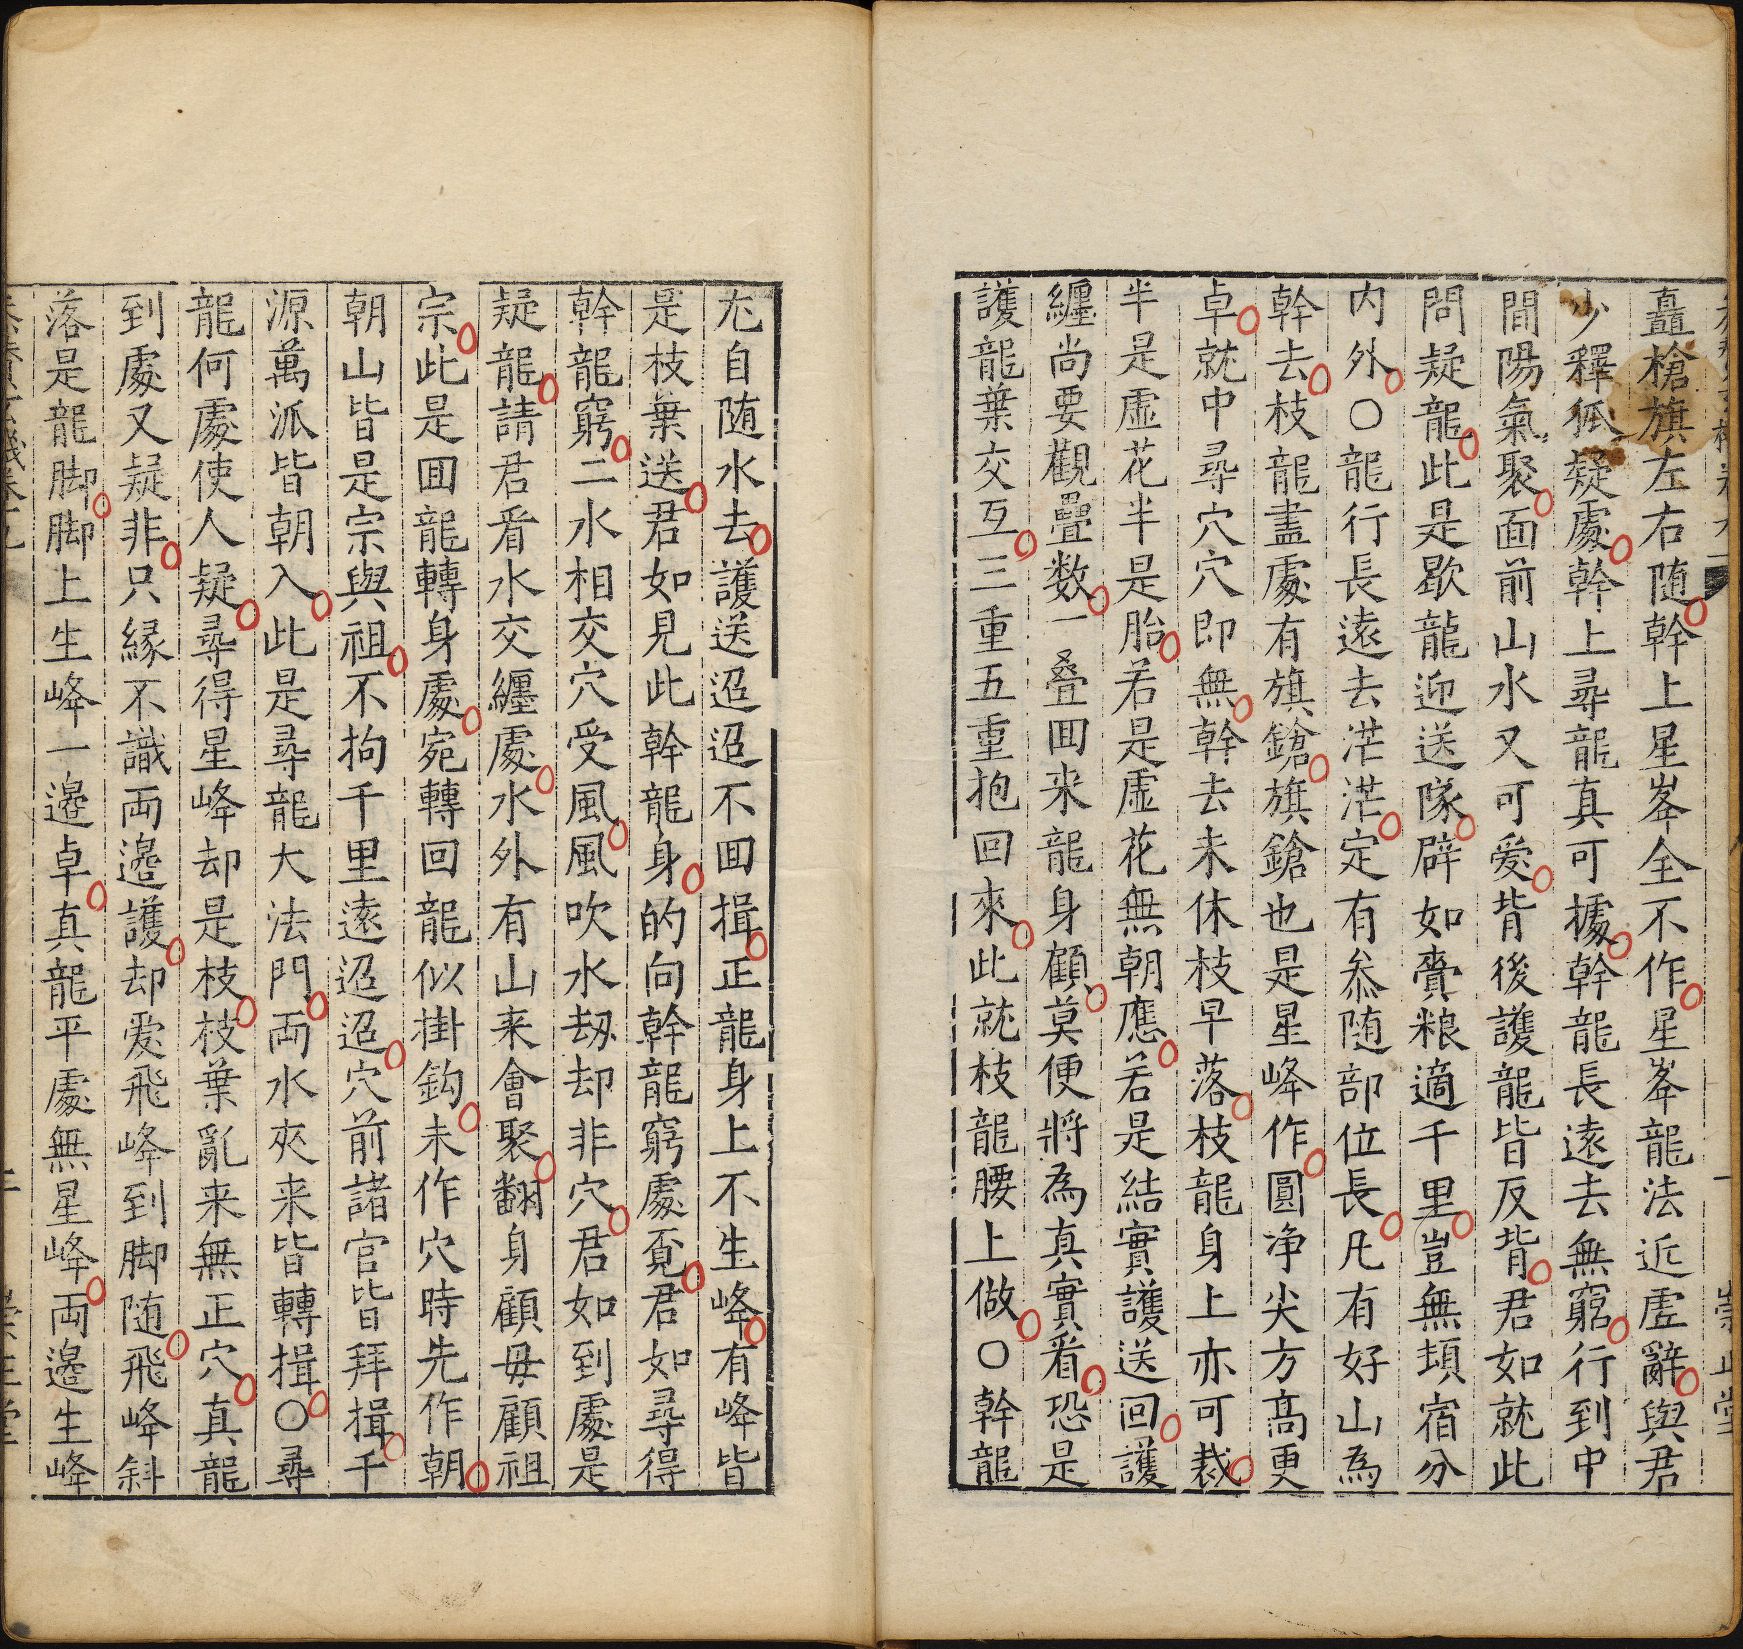 纛槍旗左右随幹上星峯全不作星峯龍法近虛辭與君
少釋狐疑處幹上尋龍真可據幹龍長遠去無窮行到中
間陽氣聚面前山水又可愛背後護龍皆反背君如就此
問疑龍此是歇龍迎送隊辟如賫粮適千里豈無頓宿分
内外○龍行長遠去茫茫定有叅随部位長凡有好山為
幹去枝龍盡處有旗鎗旗鎗也是星峰作圓净尖方高更
卓就中尋穴穴即無幹去未休枝早落枝龍身上亦可裁
半是虛花半是胎若是虛花無朝應若是結實護送回護
纏尚要觀疊数一叠囬来龍身顧莫便將為真實看恐是
護龍葉交互三重五重抱回來此就枝龍腰上做○幹龍
尢自随水去護送迢迢不囬揖正龍身上不生峰有峰皆
是枝葉送君如見此幹龍身的向幹龍窮處覔君如尋得
幹龍窮二水相交穴受風風吹水刼却非穴君如到處是
疑龍請君看水交纏處水外有山来會聚翻身顧母顧祖
宗此是囬龍轉身處宛轉回龍似掛鈎未作穴時先作朝
朝山皆是宗與祖不拘千里遠迢迢穴前諸官皆拜揖千
源萬派皆朝入此是尋龍大法門両水夾来皆轉揖○尋
龍何處使人疑尋得星峰却是枝枝葉亂来無正穴真龍
到處又疑非只縁不識両邊護却爱飛峰到脚随飛峰斜
落是龍脚脚上生峰一邊卓真龍平處無星峰両邊生峰